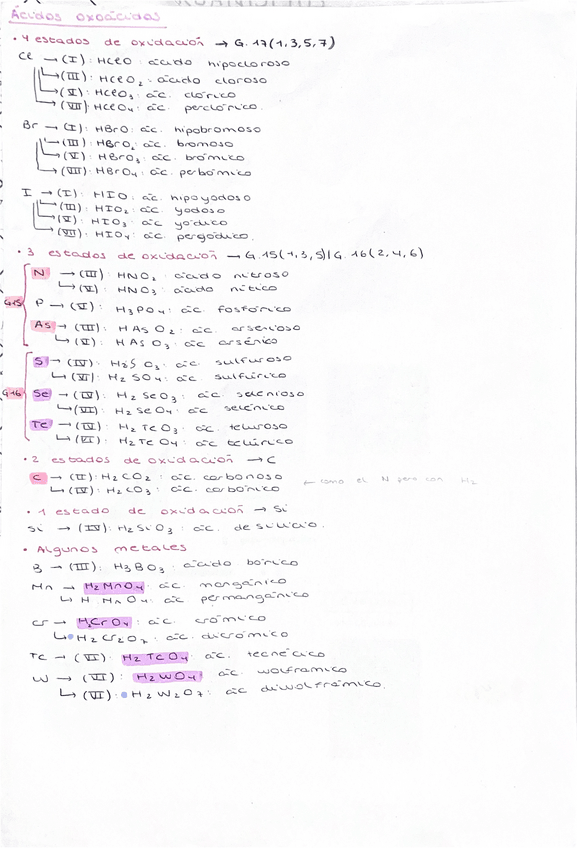 Ácidos oxoácidos
• 4 estados de oxidación → G.17 (1,3,5,7)
Cl → (I): HClO: ácido hipocloroso
→ (III): HClO2: ácido cloroso
→ (V): HClO3: ác. clórico
→ (VII): HClO4: ác. perclórico.
Br → (I): HBrO: ác. hipobromoso
→ (III): HBrO2: ác. bromoso
→ (V): HBrO3: ác. brómico
→ (VII): HBrO4: ác. perbómico
I → (I): HIO: ác. hipoyodoso
→ (III): HIO2: ác. yodoso
→ (V): HIO3: ác. yódico
→ (VII): HIO4: ác. peryódico.
• 3 estados de oxidación → G.15 (1,3,5) | G.16 (2,4,6)
G15
N → (III): HNO2: ácido nitroso
→ (V): HNO3: ácido nítico
P → (V): H3PO4: ác. fosfórico
As → (III): HAsO2: ác. arsenioso
→ (V): HAsO3: ác. arsénico
G16
S → (IV): H2SO3: ác. sulfuroso
→ (VI): H2SO4: ác. sulfúrico
Se → (IV): H2SeO3: ác. selenioso
→ (VI): H2SeO4: ác. selénico
Te → (IV): H2TeO3: ác. teluroso
→ (VI): H2TeO4: ác telúrico
• 2 estados de oxidación → C
C → (II): H2CO2: ác. carbonoso
→ (IV): H2CO3: ác. carbónico ← como el N pero con H2
• 1 estado de oxidación → Si
Si → (IV): H2SiO3: ác. de silicio.
• Algunos metales
B → (III): H3BO3: ácido bórico
Mn → H2MnO4: ác. mangánico
→ HMnO4: ác permangánico.
Cr → H2CrO4: ác. crómico
→ H2Cr2O7: ác. dicrómico
Tc → (VI): H2TcO4: ác. tecnécico
W → (VI): H2WO4: ác. wolframico
→ (VI): H2W2O7: ác diwolfrámico.